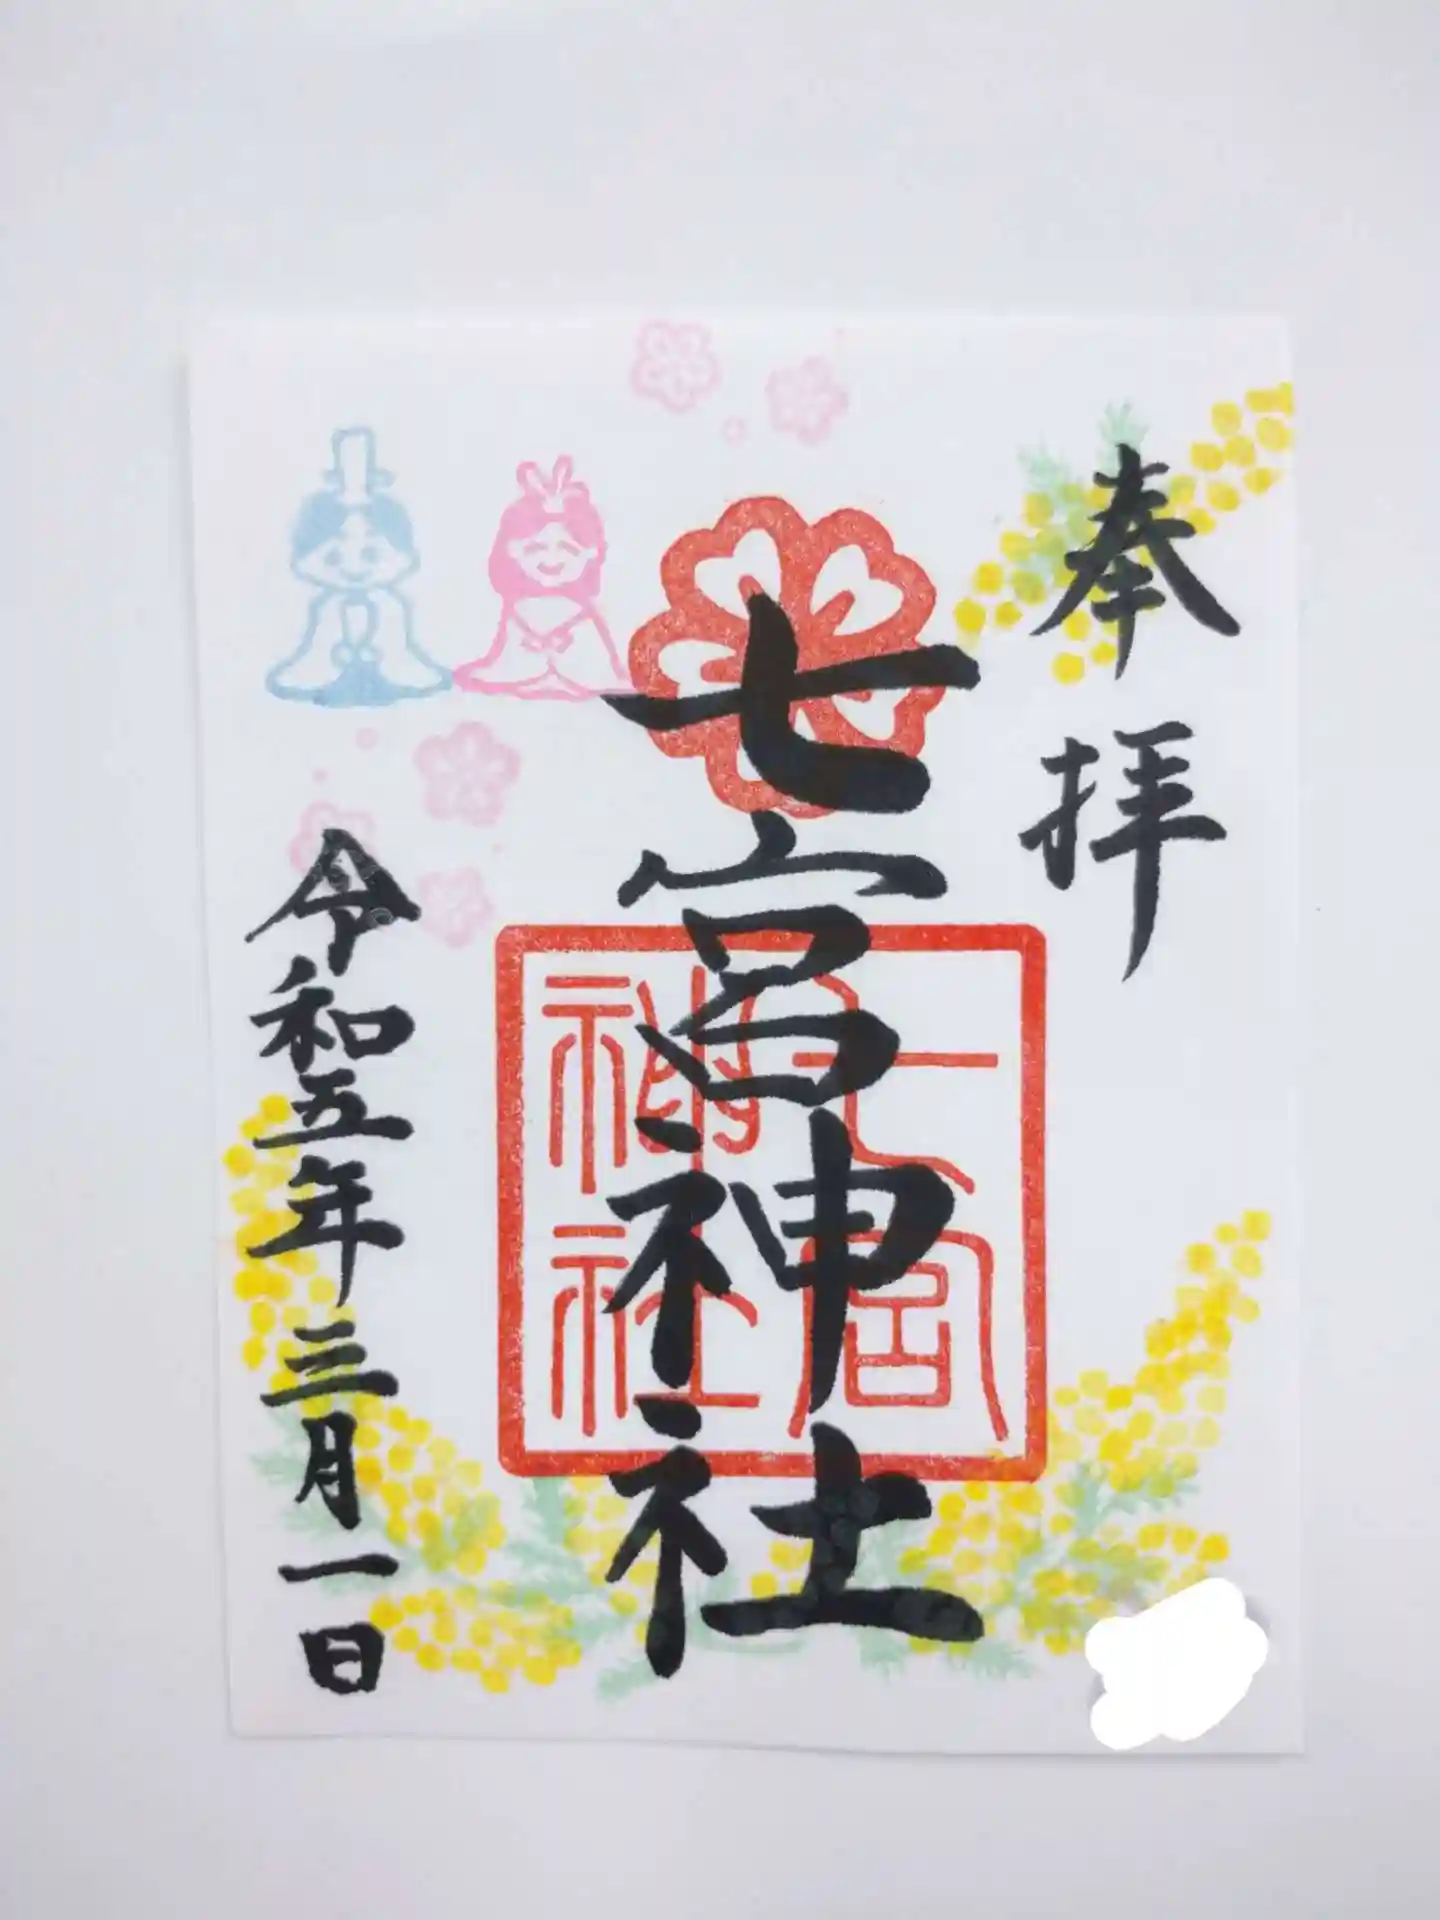 奉拝
七宮神社
七宮
神社
令和五年三月一日